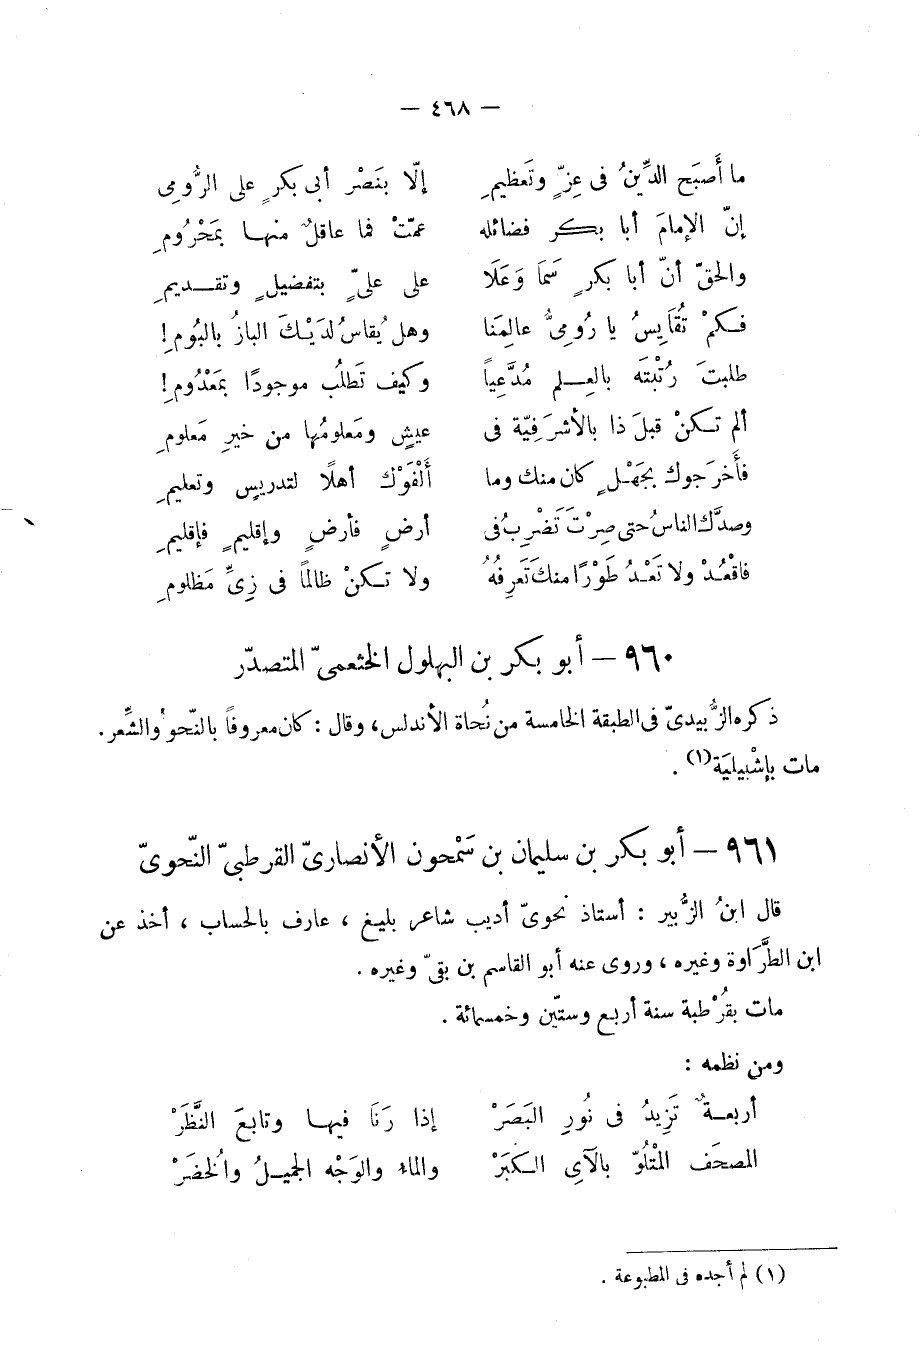 — ٤٦٨ —
ما أَصبَح الدِّينُ فى عِزٍّ وتَعظيمِ إلّا بنَصْر أبى بكرٍ على الرُّومِى
إنّ الإمامَ أبا بكر فضائله عمّتْ فما عاقلٌ منها بمَحْرُومِ
والحقّ أنّ أبا بكرٍ سَمَا وَعَلَا على علىٍّ بتفضيلٍ وتقديمِ
فكمْ تُقَايِسُ يا رُومِىُّ عالِمَنا وهل يُقاسُ لدَيْكَ البازُ بالبُومِ!
طلبتَ رُتْبتَه بالعِلم مُدَّعِياً وكيف تَطلُب موجودًا بمَعْدُوم!
ألم تكنْ قبلَ ذا بالأشرَفِيّة فى عيشٍ ومَعلومُها من خيرِ مَعلومِ
فأَخرَجوك بجَهْلٍ كان منك وما أَلْفَوْك أهلًا لتدريسٍ وتعليمِ
وصدَّك الناسُ حتى صِرْتَ تَضْرِبُ فى أرضٍ فأرضٍ وإقليمٍ فإقليمِ
فاقْعُدْ ولا تَعْدُ طَوْرًا منكَ تَعرِفُهُ ولا تكنْ ظالمًا فى زِىِّ مَظلومِ
٩٦٠ — أبو بكر بن البهلول الخثعمىّ المتصدّر
ذكره الزُّبيدىّ فى الطبقة الخامسة من نُحاة الأندلس، وقال : كان معروفاً بالنّحو والشِّعر.
مات بإشْبِيليَة(١) .
٩٦١ — أبو بكر بن سليمان بن سَمْحون الأنصارىّ القرطبىّ النّحوىّ
قال ابنُ الزُّبير : أستاذ نحوىّ أديب شاعر بليغ ، عارف بالحساب ، أخذ عن
ابن الطَّرَاوة وغيره ، وروى عنه أبو القاسم بن بقىّ وغيره .
مات بقُرْطبة سنة أربع وستّين وخمسمائة .
ومن نظمه :
أربعةٌ تَزِيدُ فى نُورِ البَصَرْ إذا رَنَا فيها وتابعَ النَّظَرْ
المصحَف المَتْلُوّ بالآىِ الكبَرْ والماء والوَجْه الجميلُ والخُضَرْ
(١) لم أجده فى المطبوعة .